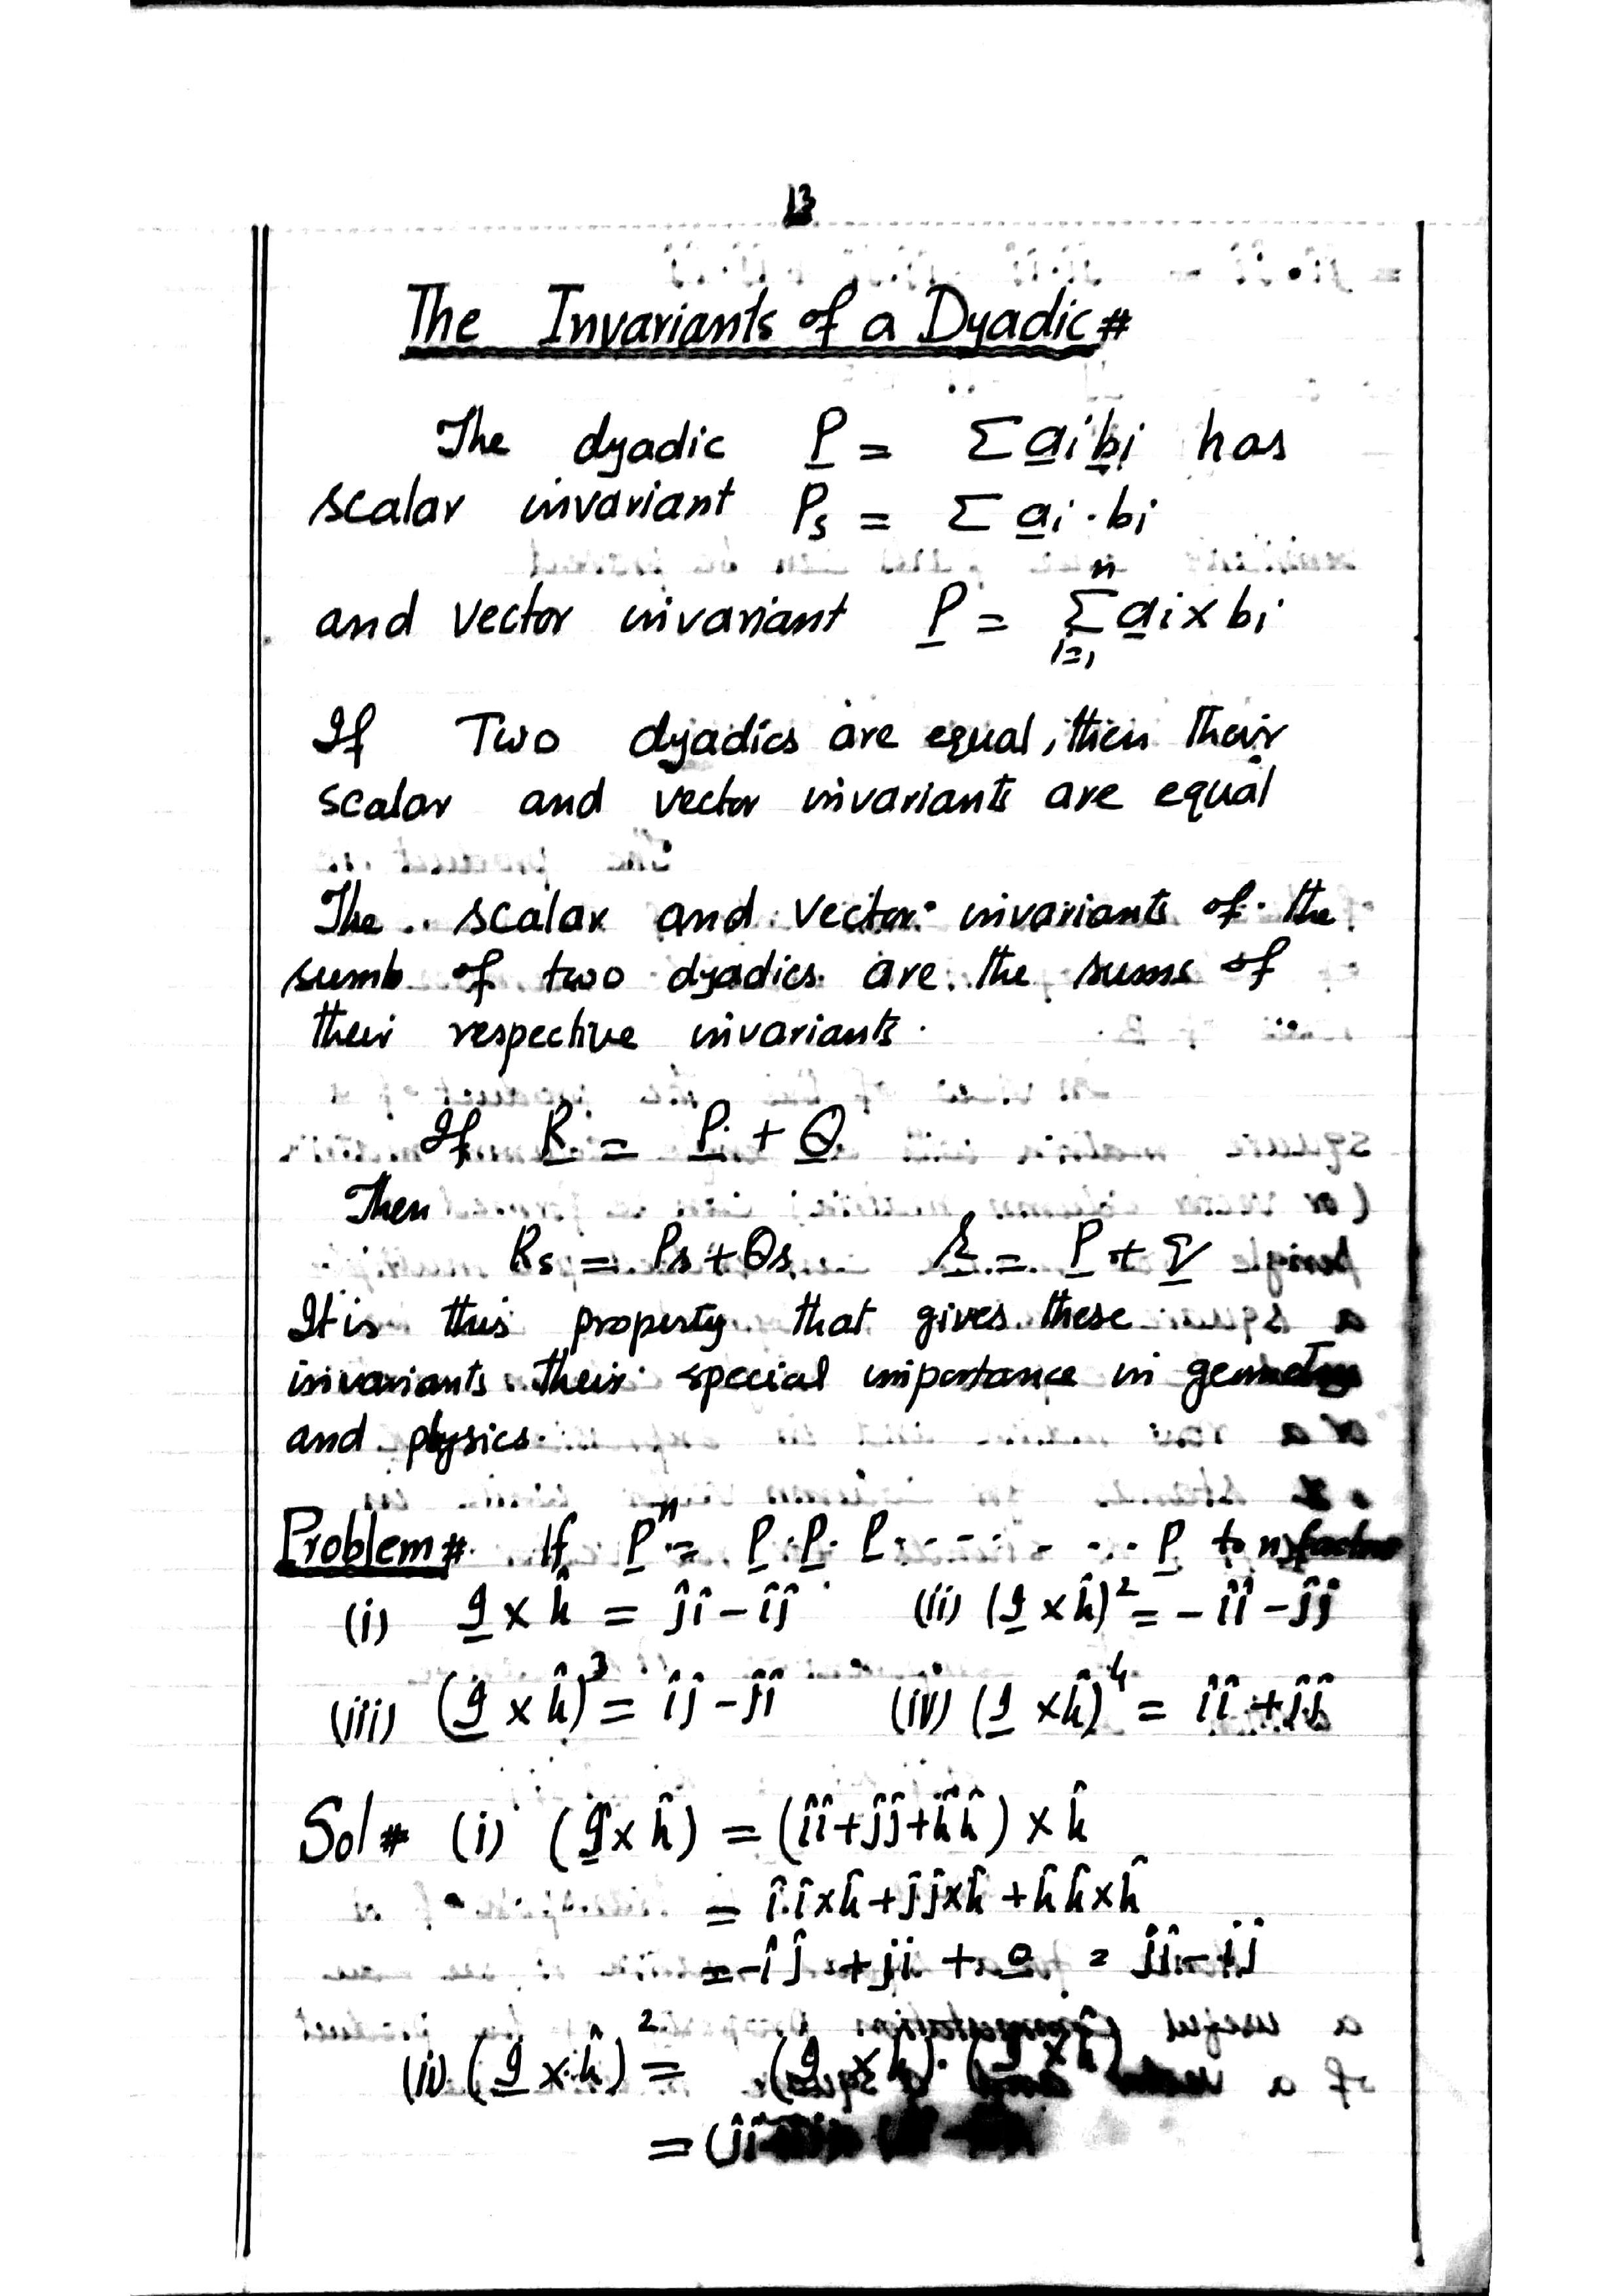 13
The Invariants of a Dyadic #
The dyadic P = Σ ai bi has
scalar invariant Ps = Σ ai · bi
and vector invariant P = Σ ai x bi
n
i=1
If Two dyadics are equal, then their
scalar and vector invariants are equal
The scalar and vector invariants of the
sumb of two dyadics are the sums of
their respective invariants.
If R = P + Q
Then
Rs = Ps + Qs r = P + q
It is this property that gives these
invariants their special importance in geometry
and physics.
Problem #. If Pⁿ = P·P·P·-----...P to n factors
(i) I x k̂ = ĵî - îĵ (ii) (I x k̂)² = - îî - ĵĵ
(iii) (I x k̂)³ = îĵ - ĵî (iv) (I x k̂)⁴ = îî + ĵĵ
Sol # (i) (I x k̂) = (îî + ĵĵ + k̂k̂) x k̂
= îî x k̂ + ĵĵ x k̂ + k̂k̂ x k̂
= - îĵ + ji + 0 = ĵî - îĵ
(ii) (I x k̂)² = (I x k̂)·(I x k̂)
= (ĵî